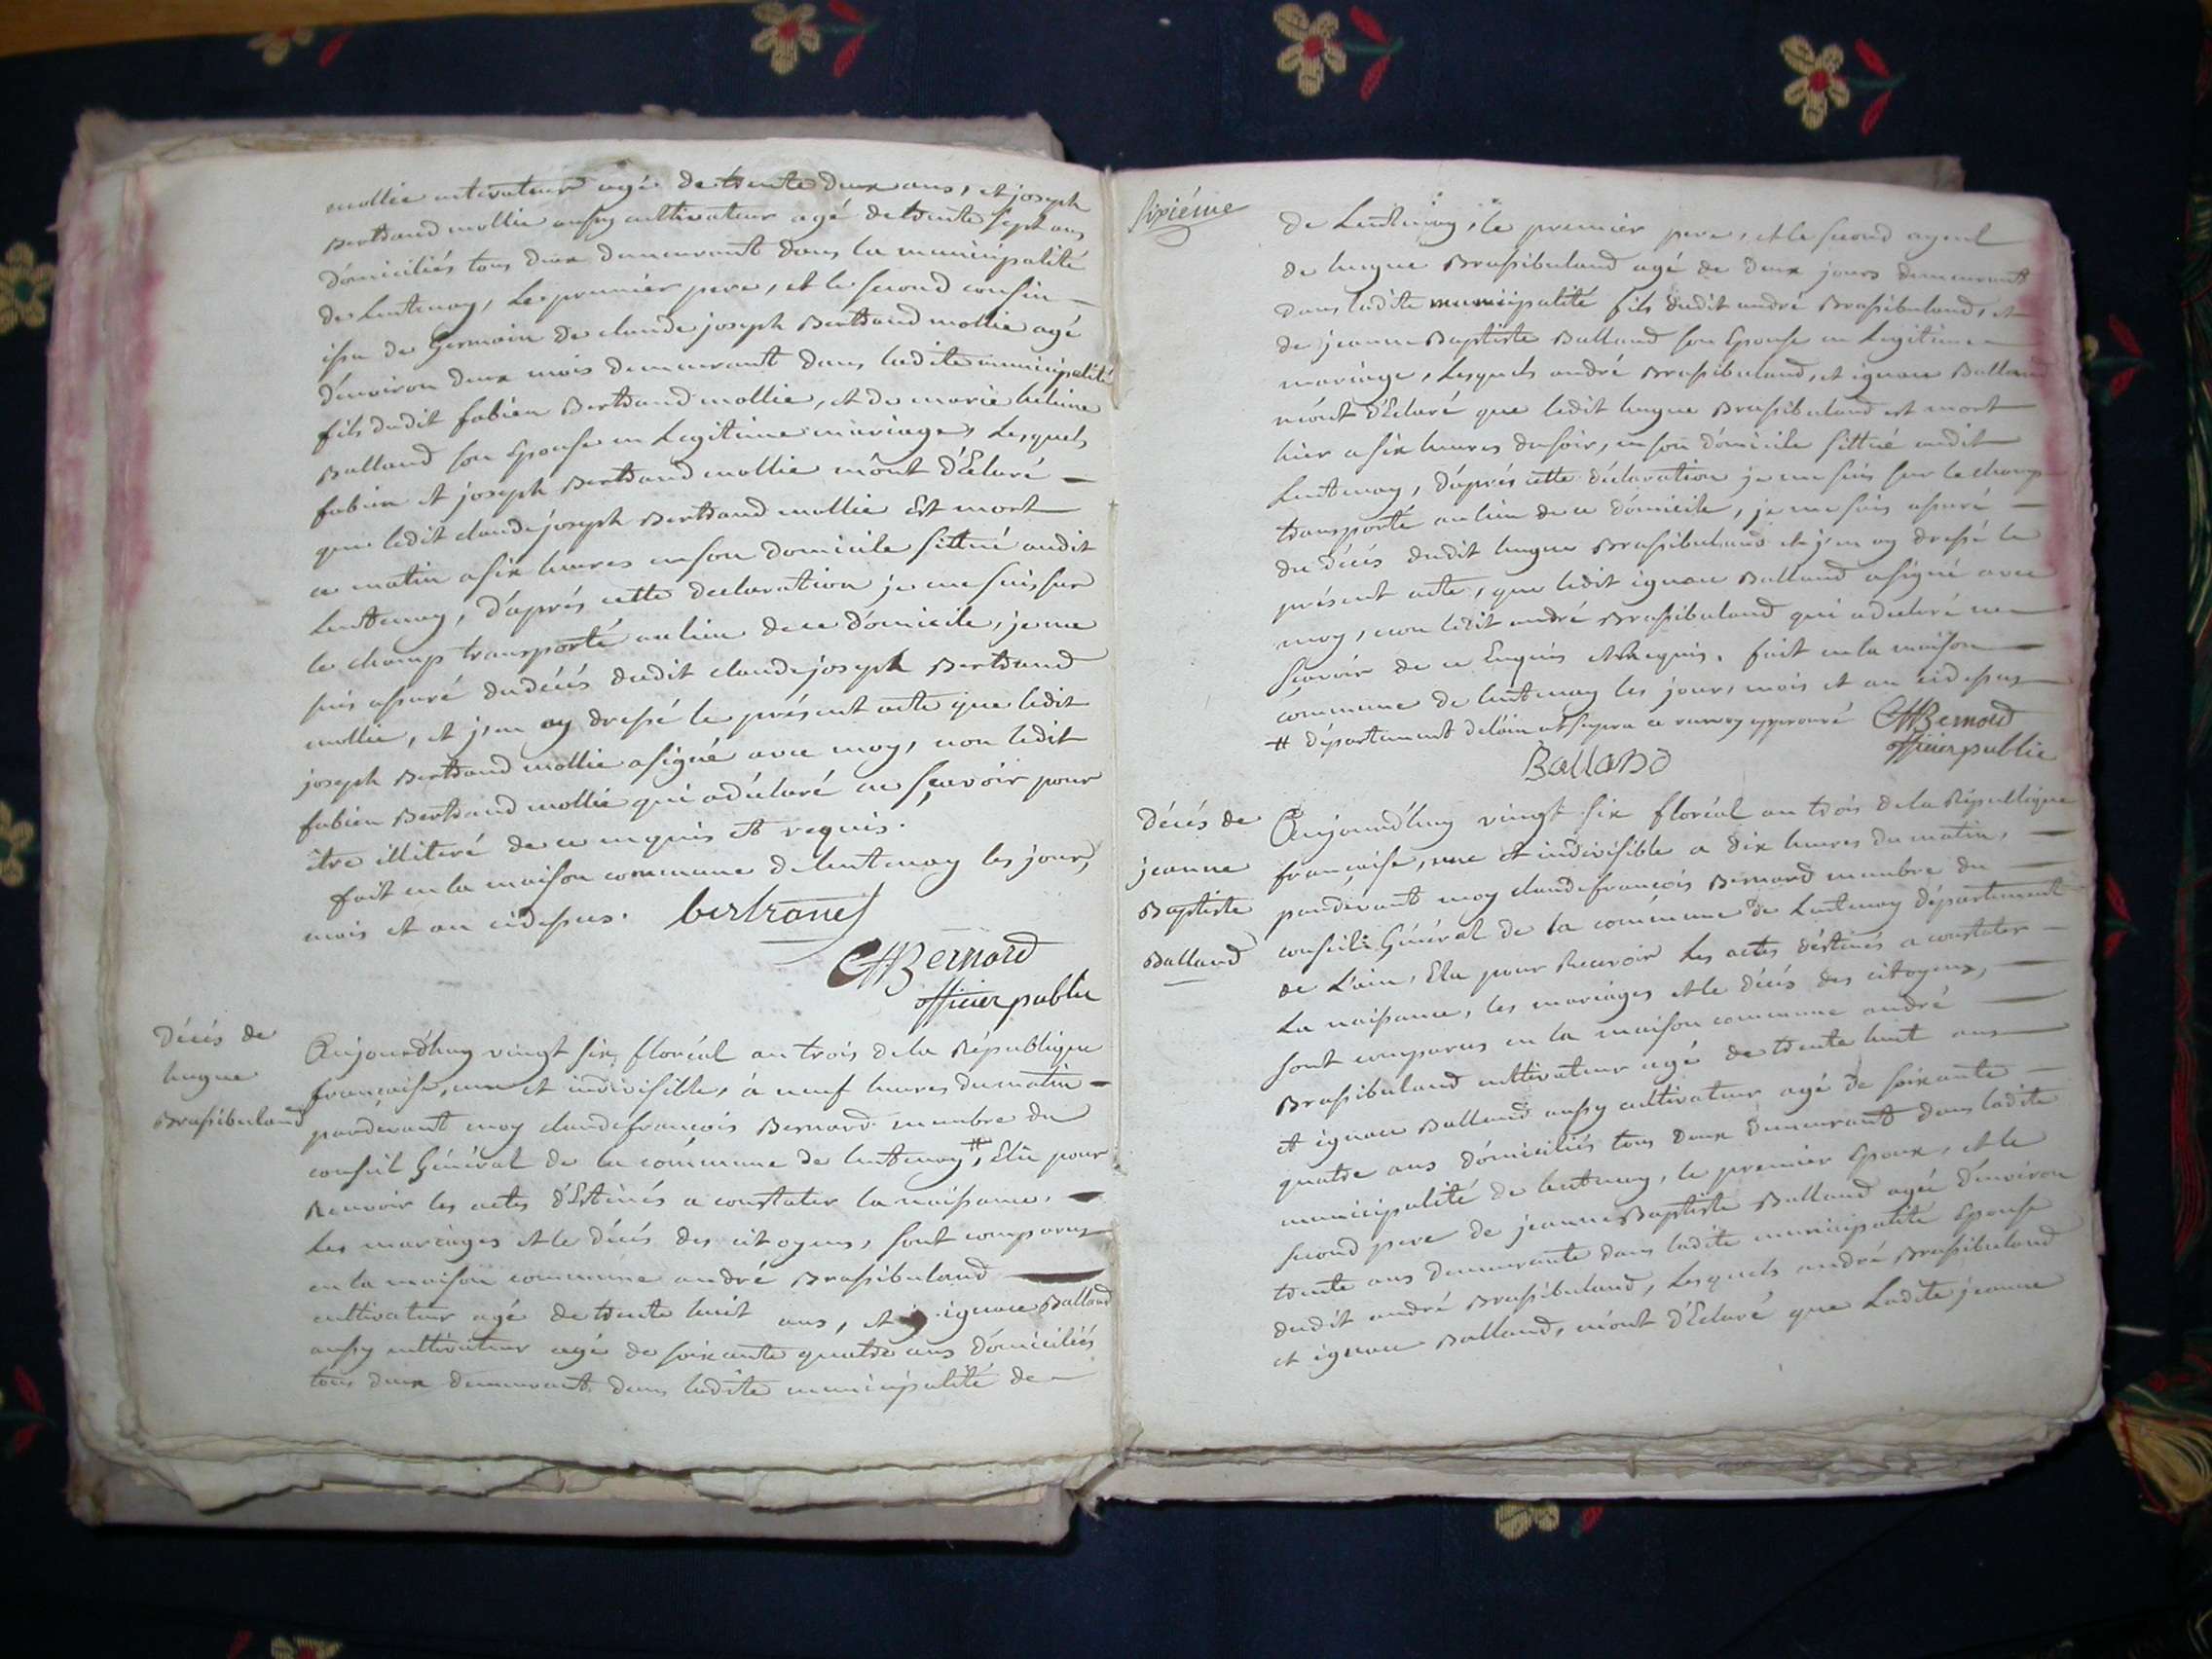 mollie cultivateur agé de trente deux ans, et joseph
Bertrand mollie aussy cultivateur agé de trente sept ans
dómiciliés tous deux demeurant dans la municipalité
de Lentenay, Le premiér pere, et le second cousin
issu de Germain de claude joseph Bertrand mollie agé
d'environ deux mois demeurant dans ladite municipalité
fils dudit fabien Bertrand mollie, et de marie heleine
Balland son Epouse en Legitime mariage, Lesquels
fabien et joseph Bertrand mollie m'ont d'Eclaré
que ledit claude joseph Bertrand mollie Est mort
ce matin a six heures en son domicile sittué audit
Lentenay, d'aprés cette declaration je me suis sur
le champ transporté au lieu de ce dómicile, je me
suis assuré du décés dudit claude joseph Bertrand
mollie, et j'en ay dressé le présent acte que ledit
joseph Bertrand mollie a signé avec moy, non ledit
fabien Bertrand mollie qui a déclaré ne sçavoir pour
être illiteré de ce enquis et requis.
fait en la maison commune de lentenay les jour,
mois et an cidessus. bertrand
CfBernard
officier public
Décés de
hugue
Brassibuland
Aujourd'huy vingt six floréal an trois de la République
francoise, une et indivisible, à neuf heures du matin
pardevant moy claude francois Bernard membre du
conseil Général de la cómmune de lentenay #, Elû pour
Recevoir les actes d'Estinés a constater la naissance,
les mariages et le décés des citoyens, sont comparus
en la maison commune andré Brassibuland
cultivateur agé de trente huit ans, et ignace Balland
aussy cultivateur agé de soixante quatre ans dómiciliés
tous deux demeurant dans ladite municipalité de
sixiéme
de Lentenay, le premier pere, et le second ayeul
de hugue Brassibuland agé de deux jours demeurant
dans ladite municipalité fils dudit andré Brassibuland, et
de jeanne Baptiste Balland son Epouse en Legitime
mariage, Lesquels andré Brassibuland, et ignace Balland
m'ónt d'Eclaré que ledit hugue Brassibuland est mort
hier a six heures du soir, en son dómicile sittué audit
Lentenay, d'aprés cette déclaration je me suis sur le champ
transporté au lieu de ce dómicile, je me suis assuré
du décés dudit hugue Brassibuland et j'en ay dressé le
présent acte, que ledit ignace Balland a signé avec
moy, non ledit andré Brassibuland qui a déclaré ne
sçavoir de ce Enquis et Requis. fait en la maison
cómmune de lentenay les jour, mois et an cidessus
# département de l'ain ut supra ce renvoy approuvé CfBernard
officier public
Balland
Décés de
jeanne
Baptiste
Balland
Aujourd'huy vingt six floréal an trois de la République
francoise, une et indivisible a dix heures du matin,
pardevant moy claude francois Bernard membre du
conseil Général de la cómmune de Lentenay département
de L'ain, Elu pour Recevoir Les actes déstinés a constater
La naissance, les mariages et le décés des citoyens,
sont comparus en la maison commune andré
Brassibuland cultivateur agé de trente huit ans
et ignace Balland aussy cultivateur agé de soixante
quatre ans dómiciliés tous deux demeurant dans ladite
municipalité de lentenay, le premier Epoux, et le
second pere de jeanne Baptiste Balland agée d'environ
trente ans demeurante dans ladite municipalité Epouse
dudit andré Brassibuland, Lesquels andré Brassibuland
et ignace Balland, m'ont d'Eclaré que Ladite jeanne